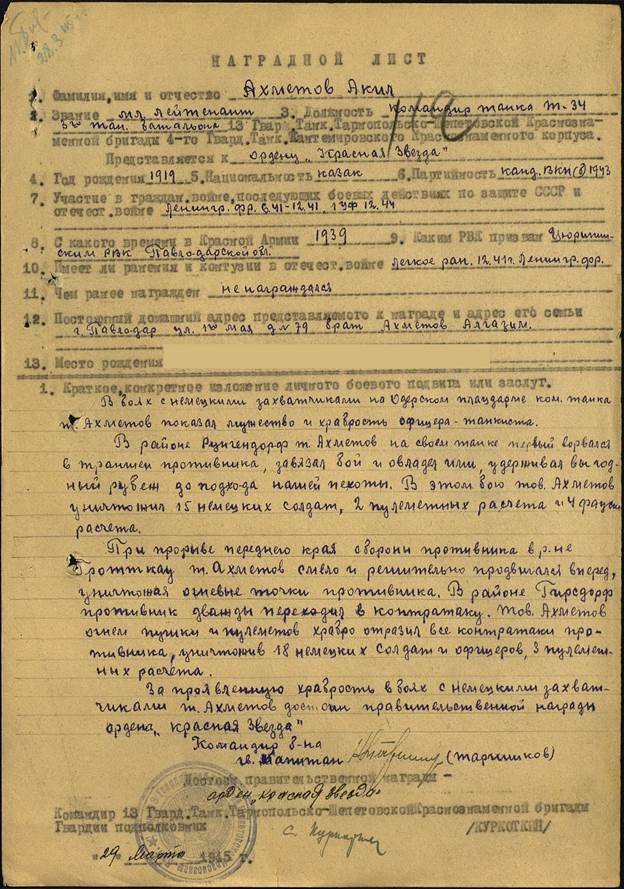 НАГРАДНОЙ ЛИСТ
1. Фамилия,имя и отчество Ахметов Акил
2. Звание мл. лейтенант 3. Должность командир танка Т-34
3го тан. батальона 13 Гвард.Танк.Тармопольско-Шепетовской Краснозна-
менной бригады 4-го Гвард.Танк.Кантемировского Краснознаменного корпуса.
Представляется к ордену „Красная Звезда"
4. Год рождения 1919 5.Национальность казак 6.Партийность канд. ВКП(б) 1943
7. Участие в граждан.войне,последующих боевых действиях по защите СССР и
отечест.войне Ленингр. фр. 41-12.41, 1УФ 12.44
8. С какого времени в Красной Армии 1939 9. Каким РВК призван Цюрипин-
ским РВК Павлодарской обл.
10. Имеет ли ранения и контузии в отечест.войне легкое ран. 12.41г. Ленингр. фр.
11. Чем ранее награжден не награждался
12. Постоянный домашний адрес представляемого к награде и адрес его семьи
г. Павлодар ул. 1го мая д № 79 брат Ахметов Алгазим.
13. Место рождения
1. Краткое,конкретное изложение личного боевого подвига или заслуг.
В боях с немецкими захватчиками на Одерском плацдарме ком. танка
т. Ахметов показал мужество и храбрость офицера-танкиста.
В районе Рунгендорф т. Ахметов на своем танке первый ворвался
в траншеи противника, завязал бой и овладел ими, удерживал выгод-
ный рубеж до подхода нашей пехоты. В этом бою тов. Ахметов
уничтожил 15 немецких солдат, 2 пулеметных расчета и 4 фауст
расчета.
При прорыве переднего края обороны противника в р-не
Гротткау т. Ахметов смело и решительно продвигался вперед,
уничтожая огневые точки противника. В районе Гирсдорф
противник дважды переходил в контратаку. Тов. Ахметов
огнем пушки и пулеметов храбро отразил все контратаки про-
тивника, уничтожив 18 немецких солдат и офицеров, 3 пулемет-
ных расчета.
За проявленную храбрость в боях с немецкими захват-
чиками т. Ахметов достоин правительственной награды
ордена „Красная Звезда"
Командир б-на
гв. капитан (Таришков)
Достоин правительственной награды -
орден „Красная Звезда"
Командир 13 Гвард.Танк.Тармопольско-Шепетовской Краснознаменной бригады
Гвардии подполковник /КУРКОТКИН/
"29" Марта 1945 г.